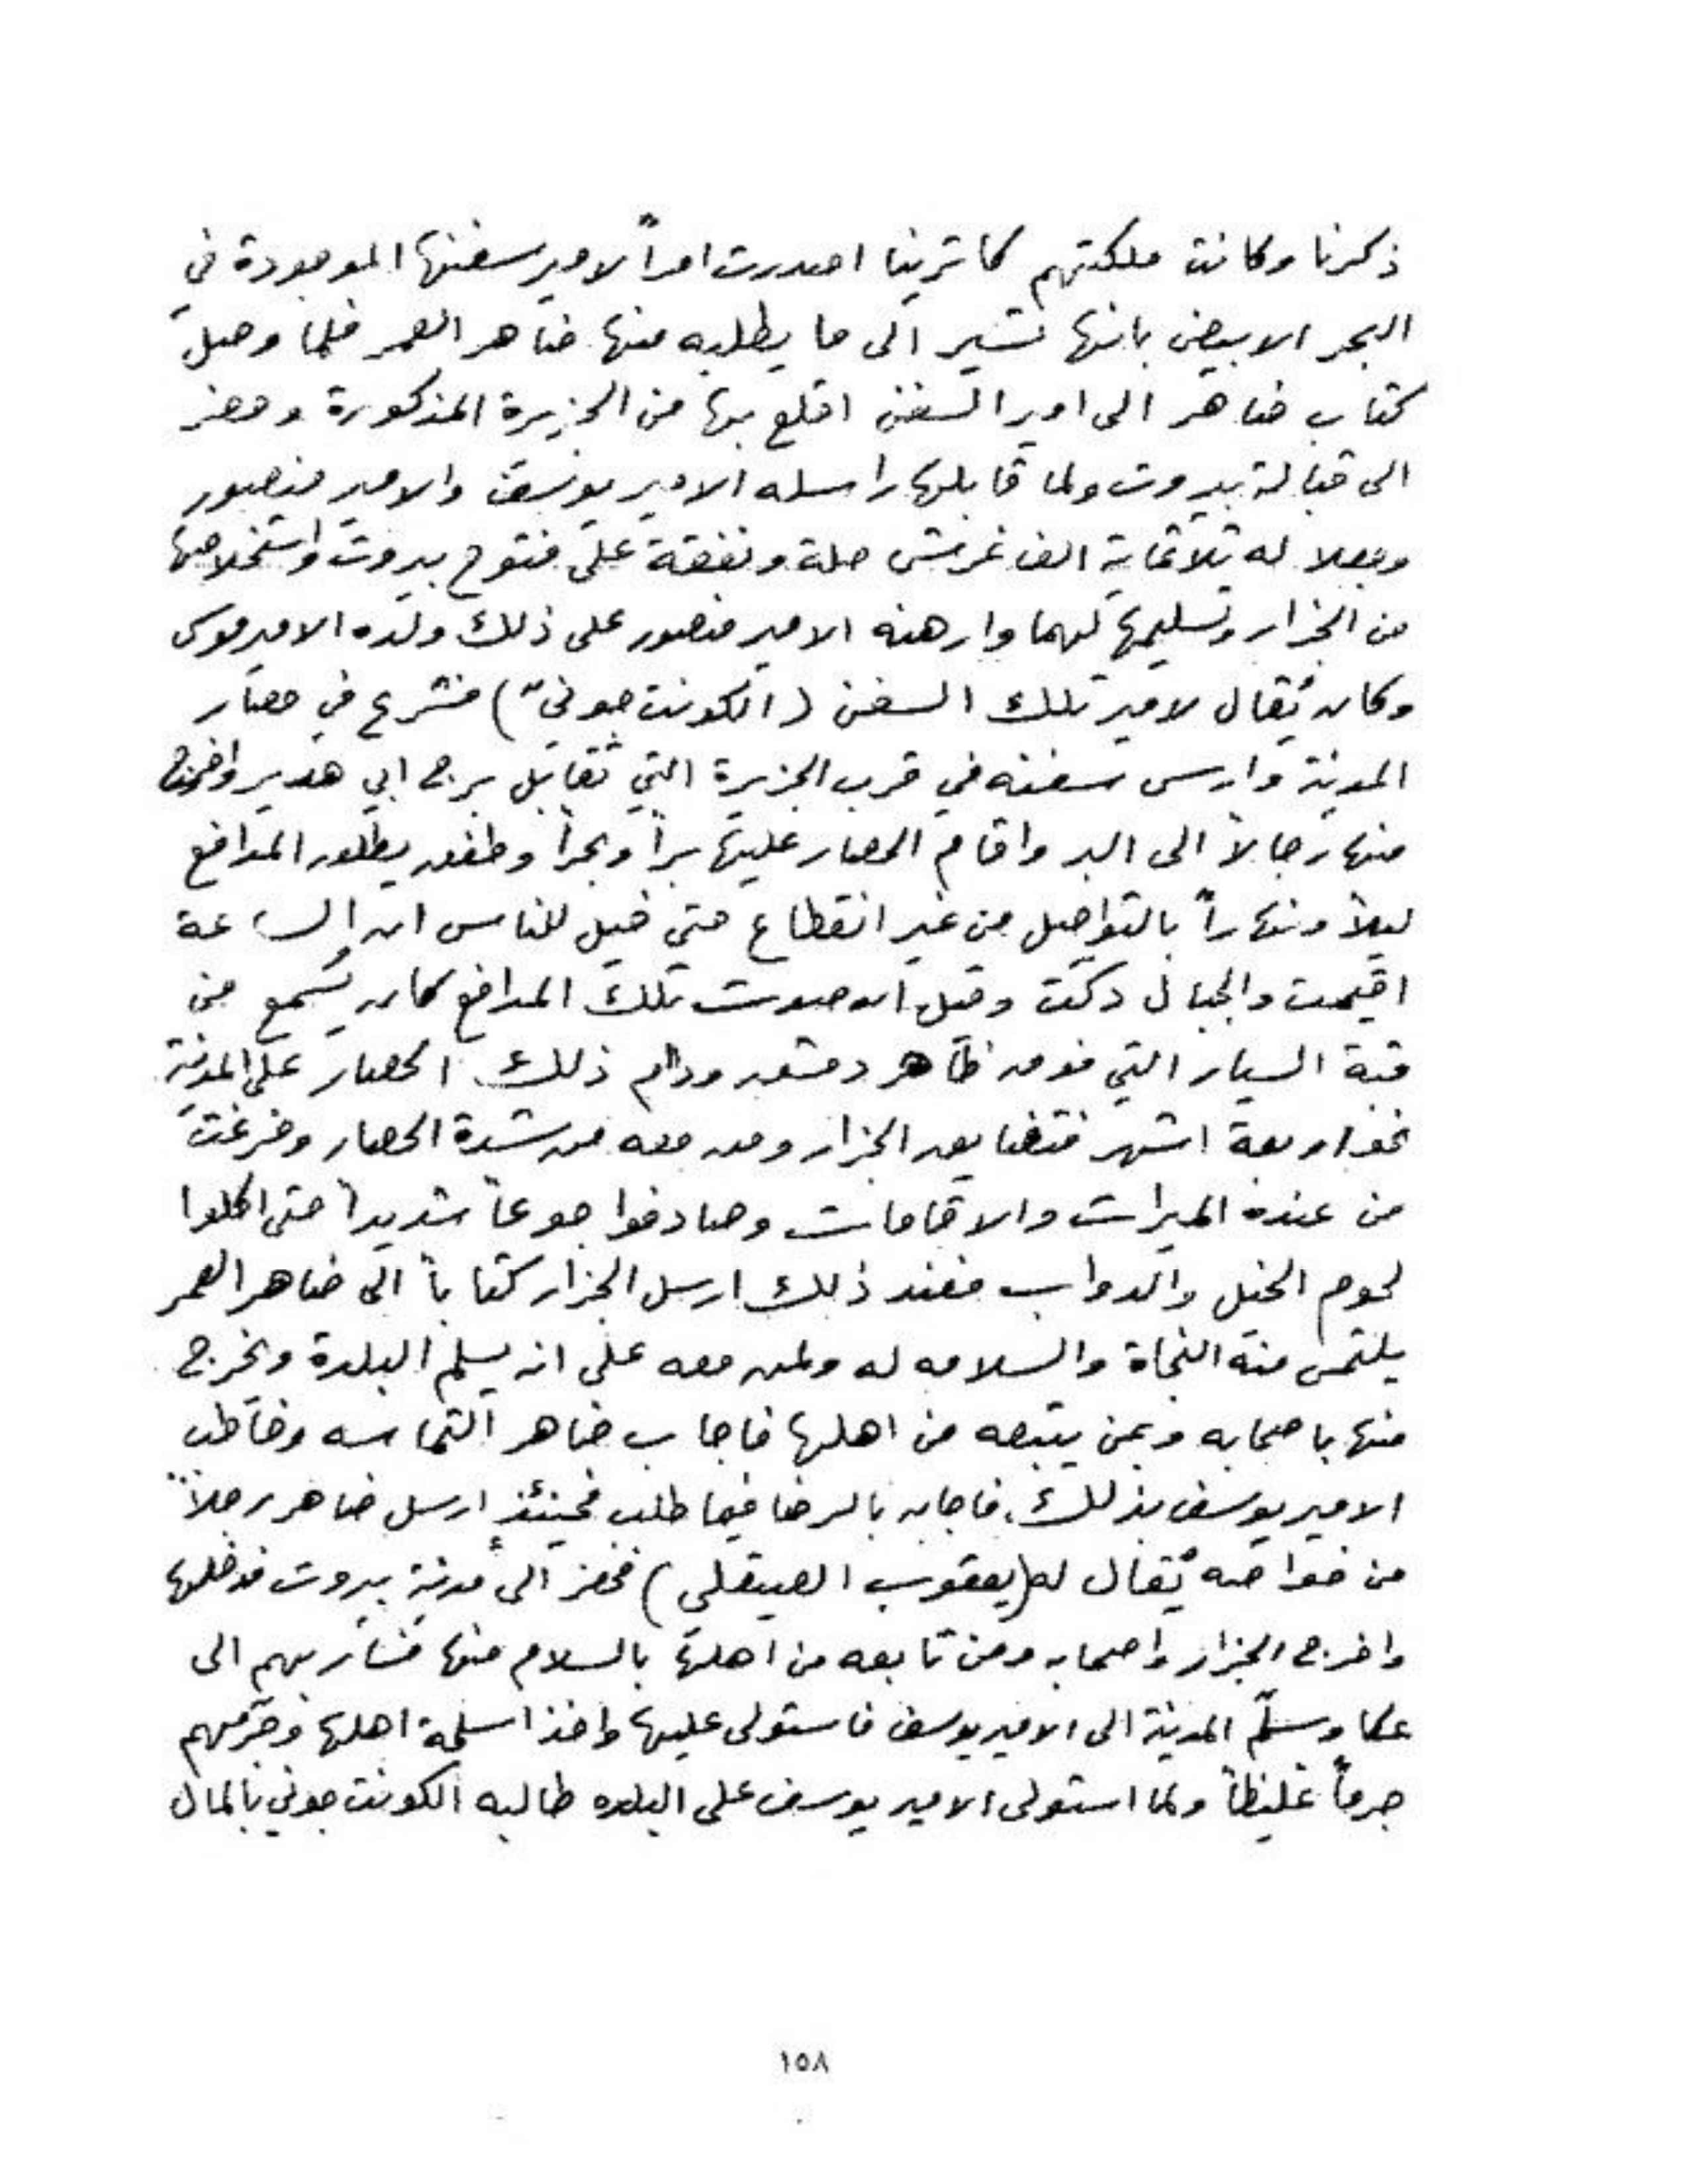 ذكرنا وكانت ملكتهم كاترينا اصدرت امراً لامير سفنها الموجودة في
البحر الابيض بانها تسير الى ما يطلبه منها ضاهر العمر فلما وصل
كتاب ضاهر الى امير السفن اقلع بها من الجزيرة المذكورة وحضر
الى قبالة بيروت ولما قابلها راسله الامير يوسف والامير منصور
وجعلا له ثلاثماية الف غرش صلة ونفقة على فتوح بيروت واستخلاصها
من الجزار وتسليمها لهما وارهنه الامير منصور على ذلك ولده الامير موسى
وكان يُقال لامير تلك السفن (الكونت جوني) فشرع في حصار
المدينة وارسى سفنه في قرب الجزيرة التي تقابل برج ابي هدير واخرج
منها رجالاً الى البر واقام الحصار عليها براً وبحراً وطفق يطلق المدافع
ليلاً ونهاراً بالتواصل من غير انقطاع حتى خيل للناس ان الساعة
اقيمت والجبال دكت وقيل ان صوت تلك المدافع كان يُسمع من
قبة السيار التي فوق ظاهر دمشق ودام ذلك الحصار على المدينة
نحو اربعة اشهر فتضايق الجزار ومن معه من شدة الحصار وفرغت
من عنده الميرات والاقامات وصادفوا جوعاً شديداً حتى اكلوا
لحوم الخيل والدواب فعند ذلك ارسل الجزار كتاباً الى ضاهر العمر
يلتمس منه النجاة والسلامه له ولمن معه على انه يسلم البلدة ويخرج
منها باصحابه وبمن يتبعه من اهلها فاجاب ضاهر التماسه وخاطب
الامير يوسف بذلك. فاجابه بالرضا فيما طلب فحينئذٍ ارسل ضاهر رجلاً
من خواصه يُقال له (يعقوب الصيقلي) فحضر الى مدينة بيروت فدخلها
واخرج الجزار واصحابه ومن تابعه من اهلها بالسلام منها فسار بهم الى
عكا وسلّم المدينة الى الامير يوسف فاستولى عليها واخذ اسلحة اهلها وجرّمهم
جرماً غليظاً ولما استولى الامير يوسف على البلده طالبه الكونت جوني بالمال
١٥٨